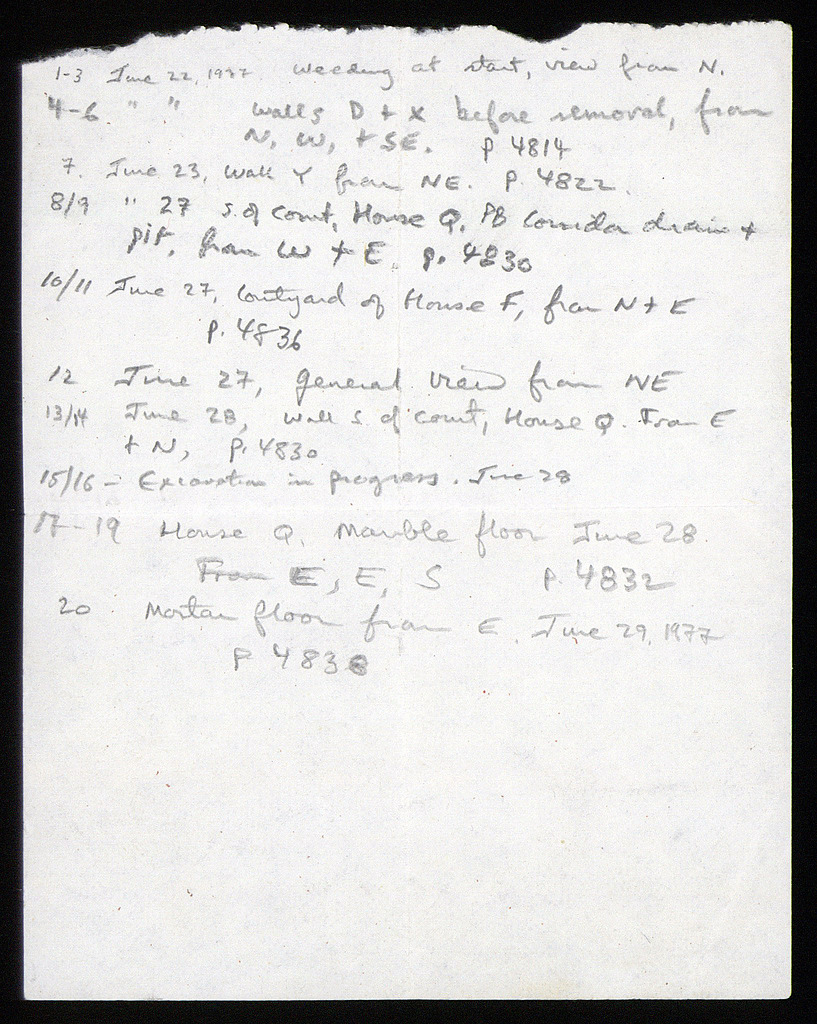 1-3 June 22, 1977. Weeding at start, view from N.
4-6 " " walls D + X before removal, from
N, W, + SE. p 4814
7. June 23, Wall Y from NE. p. 4822.
8/9 " 27 S. of court, House Q, PB Corridor drain +
pit, from W + E. p. 4830
10/11 June 27, Courtyard of House F, from N + E
p. 4836
12 June 27, general view from NE
13/14 June 28, Wall S. of court, House Q. From E
+ N, p. 4830
15/16 - Excavation in progress. June 28
17-19 House Q. Marble floor June 28.
From E, E, S p. 4832
20 Mortar floor from E. June 29, 1977
p 4838